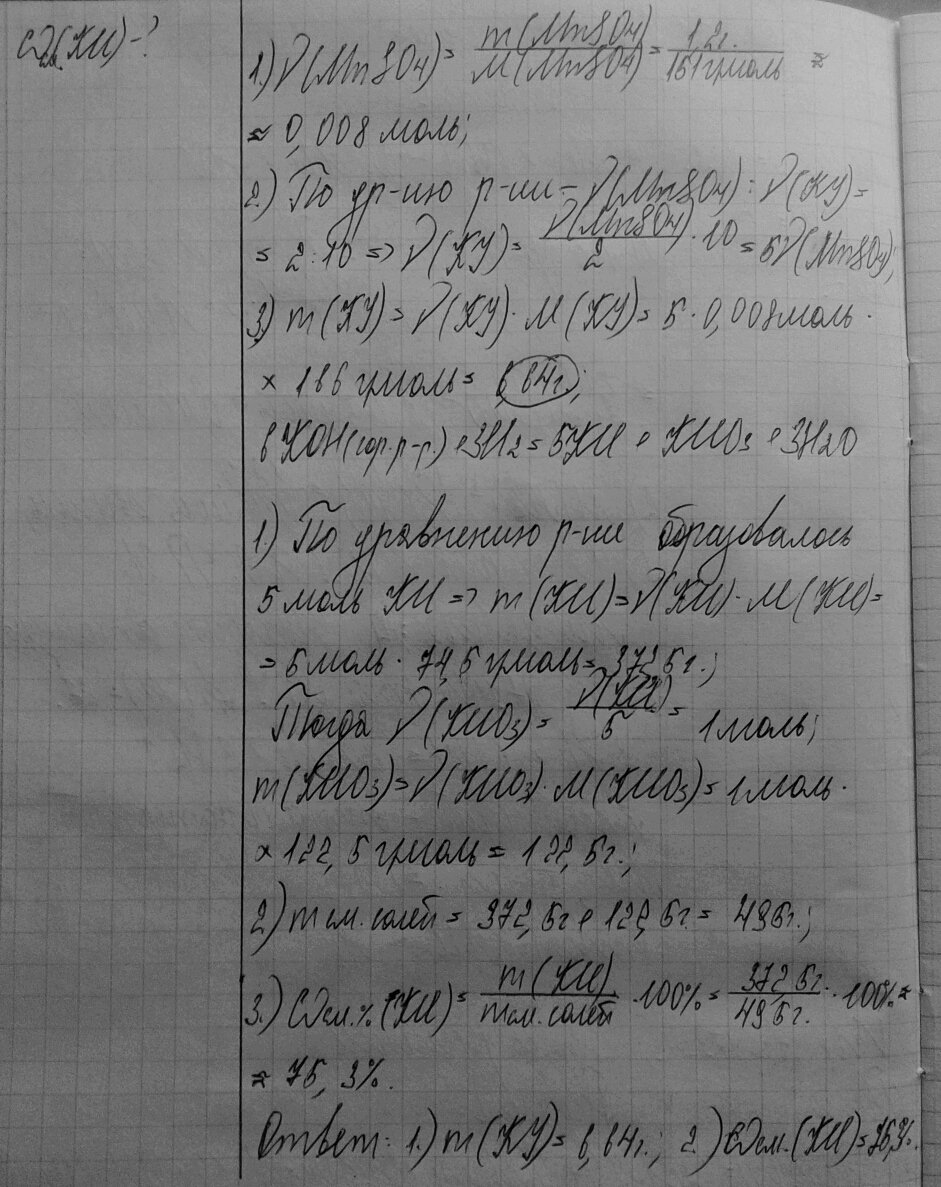 ωсм.(KCl)-?
1.) ν(MnSO4) = m(MnSO4) / M(MnSO4) = 1,2г. / 151г/моль ≈
≈ 0,008 моль;
2) По ур-ию р-ии - ν(MnSO4) : ν(KI) =
= 2:10 => ν(KI) = ν(MnSO4) / 2 · 10 = 5ν(MnSO4);
3) m(KI) = ν(KI) · M(KI) = 5 · 0,008 моль ·
× 166 г/моль = 6,64г.;
6KOH(гор. р-р.) + 3Cl2 = 5KCl + KClO3 + 3H2O
1) По уравнению р-ии образовалось
5 моль KCl => m(KCl) = ν(KCl) · M(KCl) =
= 5 моль · 74,5 г/моль = 372,5г.;
Тогда ν(KClO3) = ν(KCl) / 5 = 1 моль;
m(KClO3) = ν(KClO3) · M(KClO3) = 1 моль ·
× 122,5 г/моль = 122,5г.;
2) m см. солей = 372,5г + 122,5г. = 495г.;
3.) ωсм.% (KCl) = m(KCl) / m см. солей · 100% = 372,5г. / 495г. · 100% ≈
≈ 75,3%.
Ответ: 1.) m(KI) = 6,64г.; 2.) ωсм.(KCl) = 75,3%.